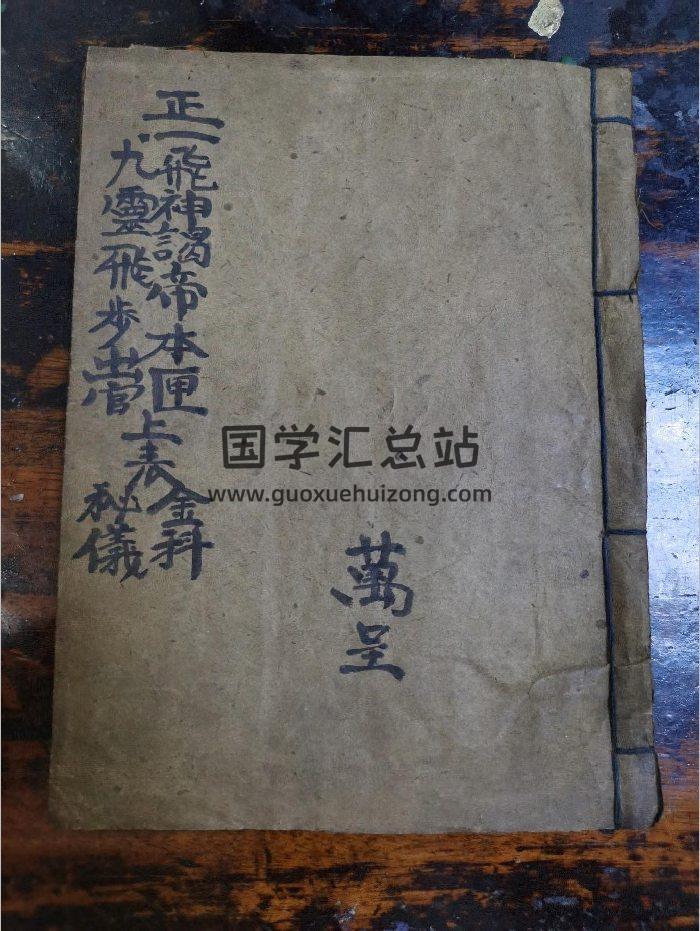 正一飛神謁帝本匣
九靈飛步
上表
金科
秘儀
萬呈
国学汇总站
www.guoxuehuizong.com